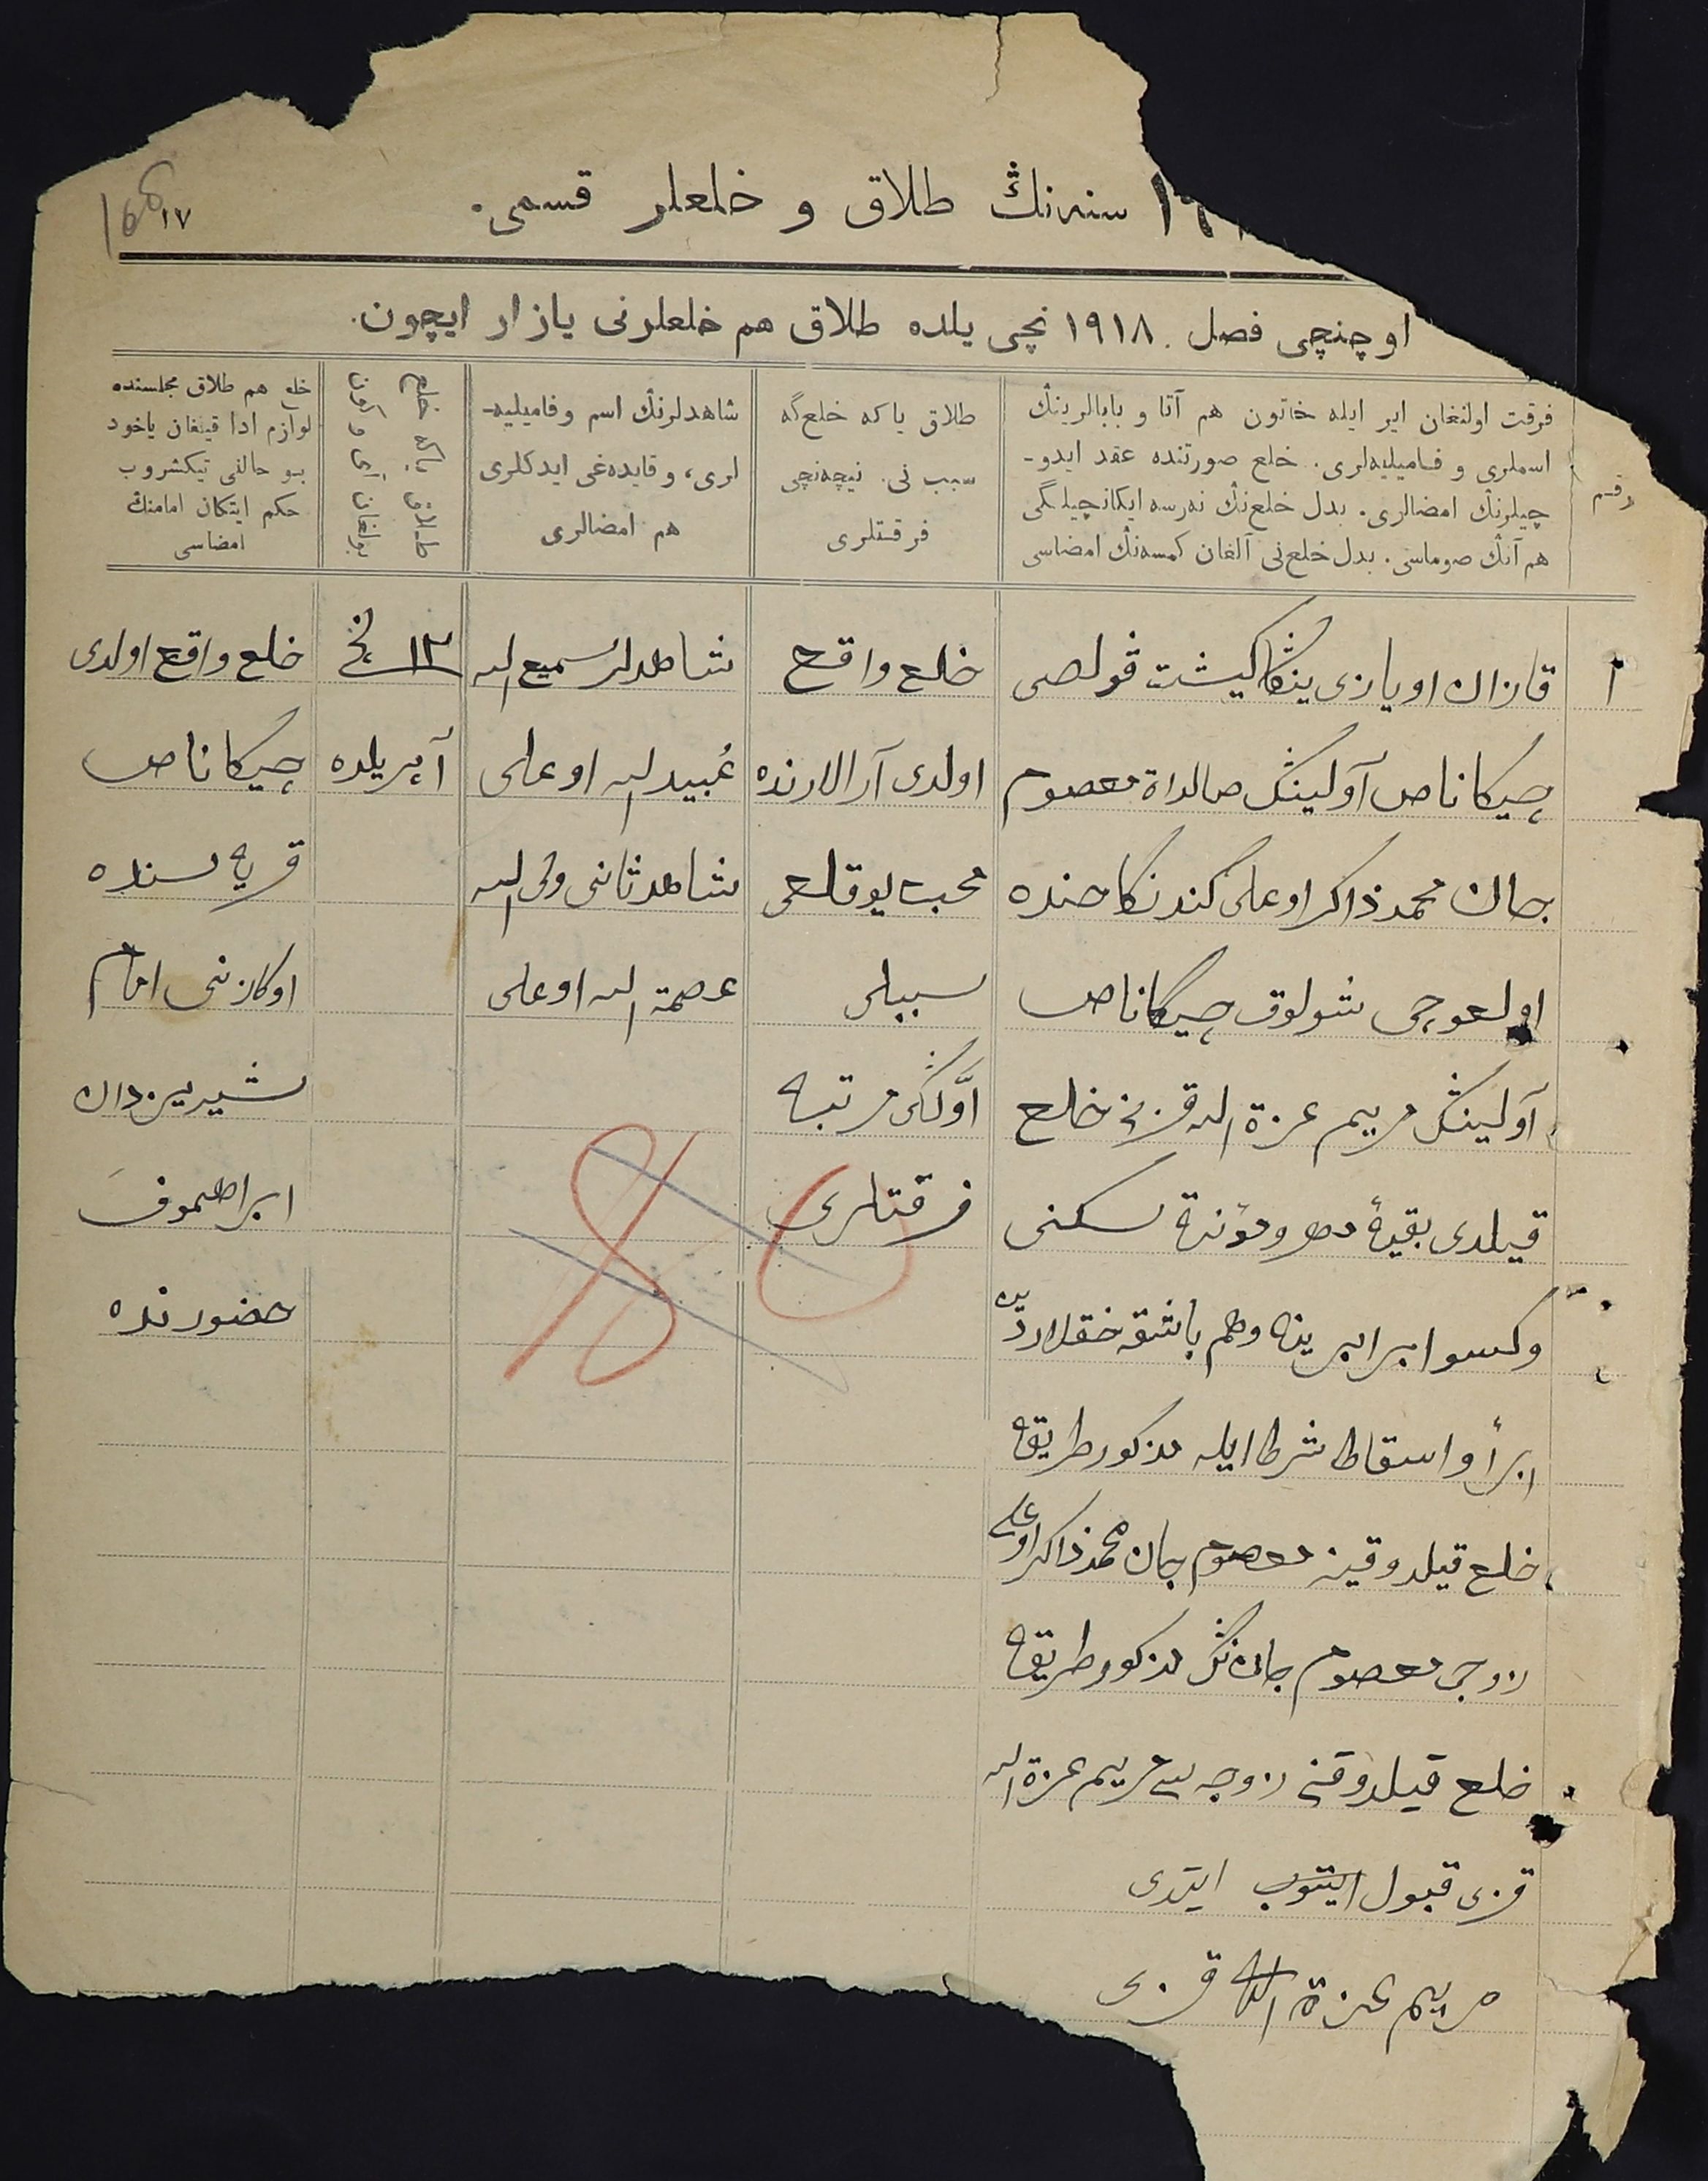 سنه‌نڭ طلاق و خلعلر قسمی.
١٧
اوچنچی فصل. ١٩١٨ نچی یلده طلاق هم خلعلرنی یازار ایچون.
رقم
فرقت اولنغان ایر ایله خاتون هم آتا و بابالرینڭ
اسملری و فامیلیه‌لری. خلع صورتنده عقد ایدو-
چیلرنڭ امضالری. بدل خلع‌نڭ نه‌رسه ایکانچیلگی
هم آنڭ صوماسی. بدل خلع‌نی آلغان کمسه‌نڭ امضاسی
طلاق یاکه خلع‌گه
سبب نی. نیچه‌نچی
فرقتلری
شاهدلرنڭ اسم و فامیلیه-
لری، و قایده‌غی ایدکلری
هم امضالری
خلع یاکه طلاق
بولغان آی و کون
خلع هم طلاق مجلسنده
لوازم ادا قیلغان یاخود
بو حالنی تیکشروب
حکم ایتکان امامنڭ
امضاسی
١
قازان اویازی ینڭاکیشت ڤولصی
چیکاناص آولینڭ صالداة معصوم
جان محمدذاکر اوغلی کندنکاحنده
اولغوچی شولوق چیکاناص
آولینڭ مریم عزة الله قزینی خلع
قیلدی بقیهٔ مهر ومؤنة سکنی
وکسوا برابرینه وهم باشقه حقلاردین
ابرأ واسقاط شرط ایله مذکور طریقه
خلع قیلدوقینه معصوم جان محمدذاکر اوغلی
زوجی معصوم جان نڭ مذکور طریقه
خلع قیلدوقنی زوجه سی مریم عزة الله
قزی قبول ایتوب ایتدی
مریم عزة الله قزی
خلع واقع
اولدی آرالارنده
محبت یوقلغی
سببلی
اوّلگی مرتبه
فرقتلری
شاهدلر سمیع الله
عُبیدالله اوغلی
شاهد ثانی ولی الله
عصمة الله اوغلی
١٣ نچی
آپریلده
خلع واقع اولدی
چیکاناص
قریه سنده
اوکازنی امام
شیریزدان
ابراهیموف
حضورنده